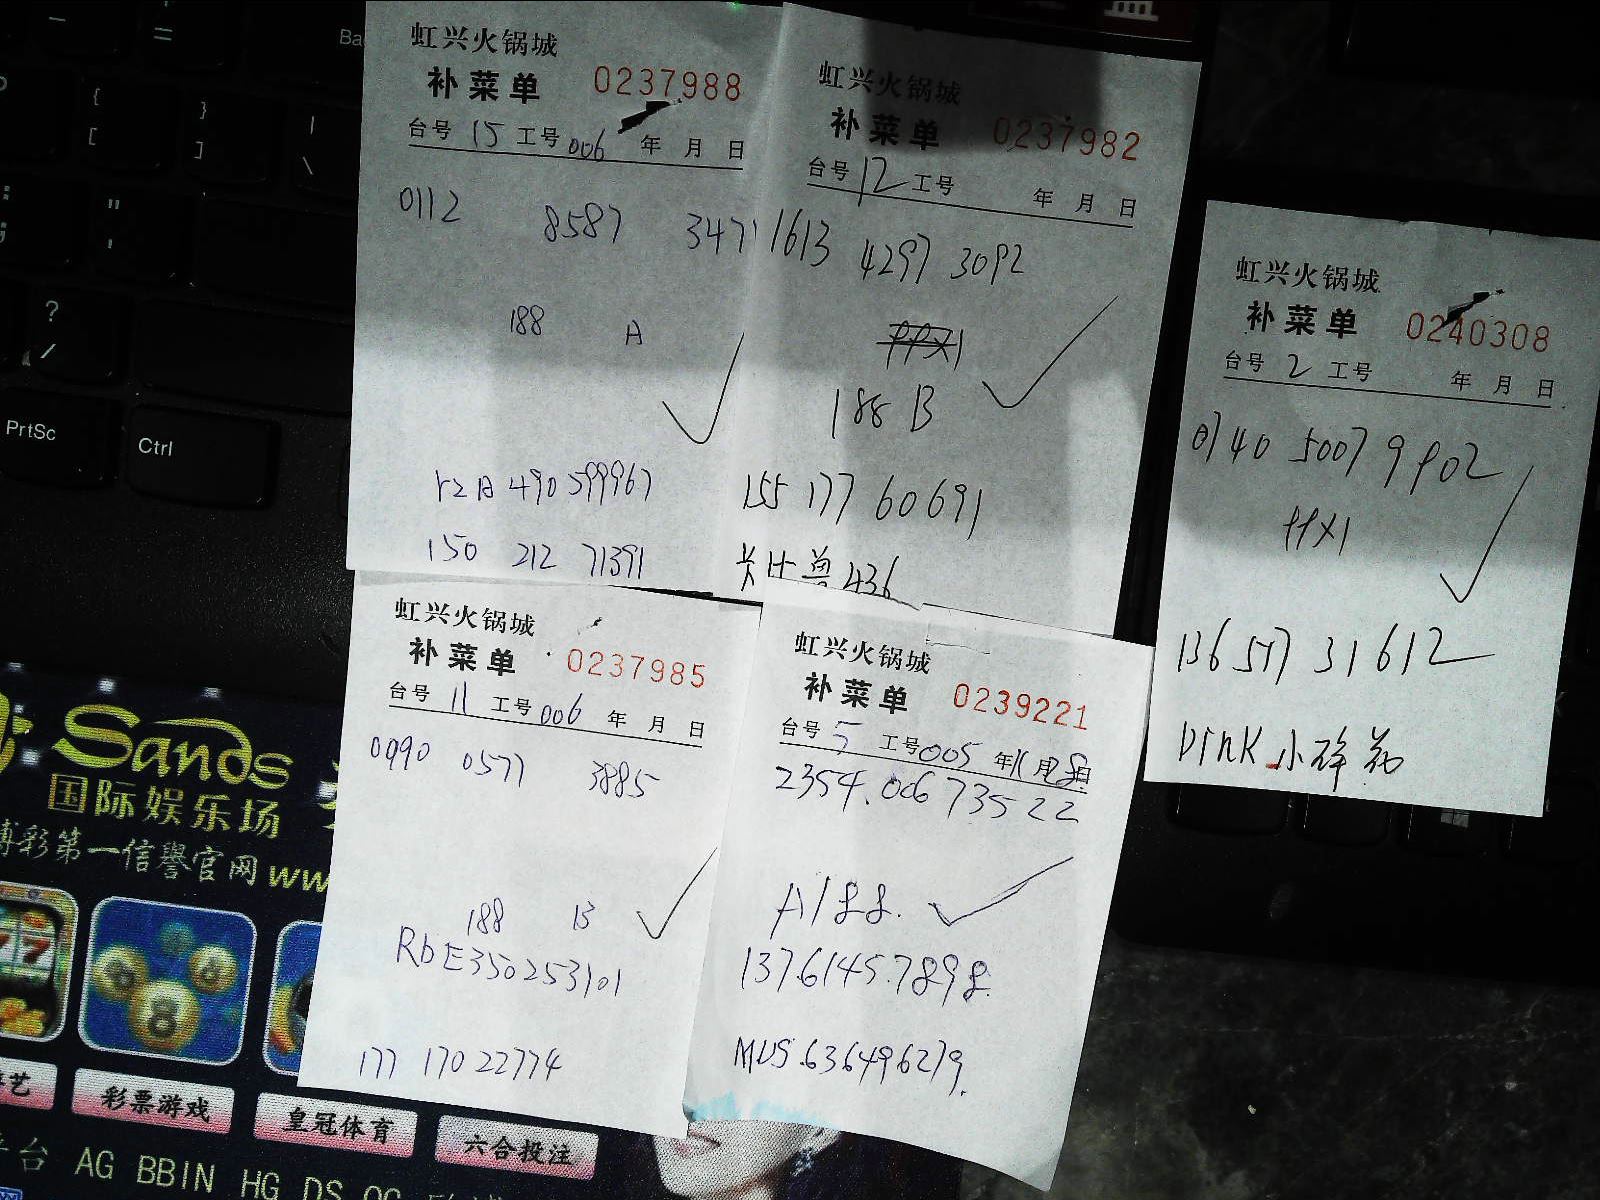 虹兴火锅城
补菜单 0237988
台号 15 工号 006 年 月 日
0112 8587 3471
188 A
150 212 71391
虹兴火锅城
补菜单 0237982
台号 12 工号 年 月 日
1613 4297 3092
188 B
155 177 60691
卡比兽436
虹兴火锅城
补菜单 0240308
台号 2 工号 年 月 日
0740 5007 9902
PPX1
136 577 31612
小碎花
虹兴火锅城
补菜单 0237985
台号 11 工号 006 年 月 日
0990 0577 3885
188 B
RbE350253101
177 170 22774
虹兴火锅城
补菜单 0239221
台号 5 工号 005 年 月 日
2354.006 73522
A188.
1376145.7898.
MUS.636496279.
=
{ }
[ ]
|
\
"
'
?
/
PrtSc
Ctrl
Sands
国际娱乐场
博彩第一信誉官网
彩票游戏
皇冠体育
六合投注
AG BBIN HG DS